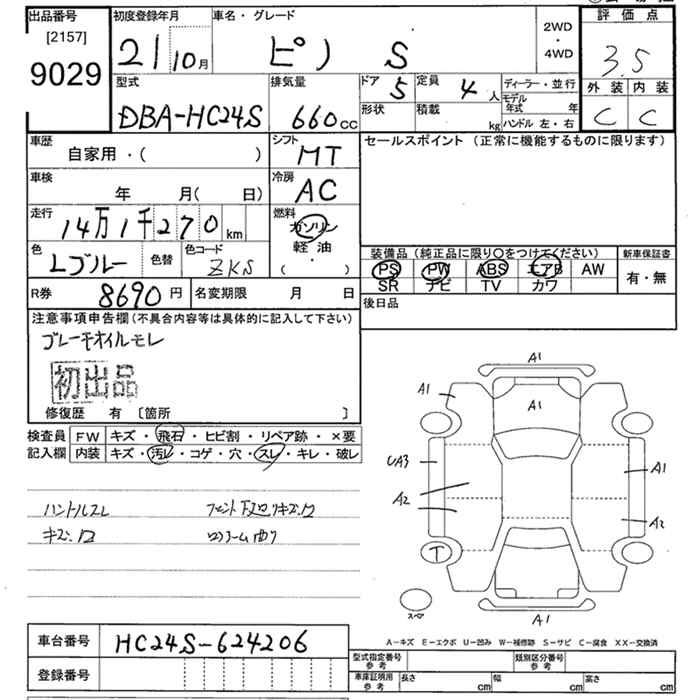 出品番号 初度登録年月 車名・グレード 評価点
[2157]
9029
21 10月 ピノ S 2WD・4WD 3.5
型式 排気量 ドア 定員 ディーラー・並行 外装 内装
DBA-HC24S 660cc 5 4人 モデル年式 年 C C
形状 積載 kg ハンドル 左・右
車歴 シフト セールスポイント (正常に機能するものに限ります)
自家用・( ) MT
車検 冷房
年 月( 日) AC
走行 燃料
14万1千270km ガソリン
軽油
( ・ )
色 色替 色コード
Lブルー ZKS
装備品 (純正品に限り○をつけてください) 新車保証書
PS PW ABS エアB AW 有・無
SR ナビ TV カワ
R券 8690円 名変期限 月 日 後日品
注意事項申告欄(不具合内容等は具体的に記入して下さい)
オイルモレ
初出品
修復歴 有 [箇所 ]
検査員 FW キズ・飛石・ヒビ割・リペア跡・×要
記入欄 内装 キズ・汚レ・コゲ・穴・スレ・キレ・破レ
ハンドルスレ
A1
A1 A1
UA3 A1
A2 A2
T
スペア A1
A-キズ E-エクボ U-凹み W-補修跡 S-サビ C-腐食 XX-交換済
車台番号 HC24S-624206
登録番号
型式指定番号 参考 類別区分番号 参考
車庫証明用 参考 長さ cm 幅 cm 高さ cm